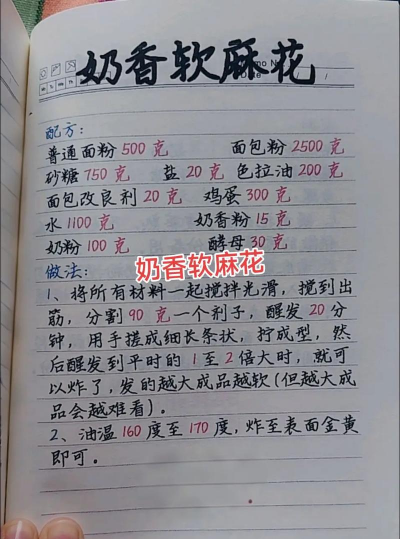 奶香软麻花
配方：
普通面粉500克 面包粉2500克
砂糖750克 盐20克 色拉油200克
面包改良剂20克 鸡蛋300克
水1100克 奶香粉15克
奶粉100克 酵母30克
奶香软麻花
做法：
1、将所有材料一起搅拌光滑，搅到出
筋，分割90克一个剂子，醒发20分
钟，用手搓成细长条状，拧成型，然
后醒发到平时的1至2倍大时，就可
以炸了，发的越大成品越软（但越大成
品会越难看）。
2、油温160度至170度，炸至表面金黄
即可。